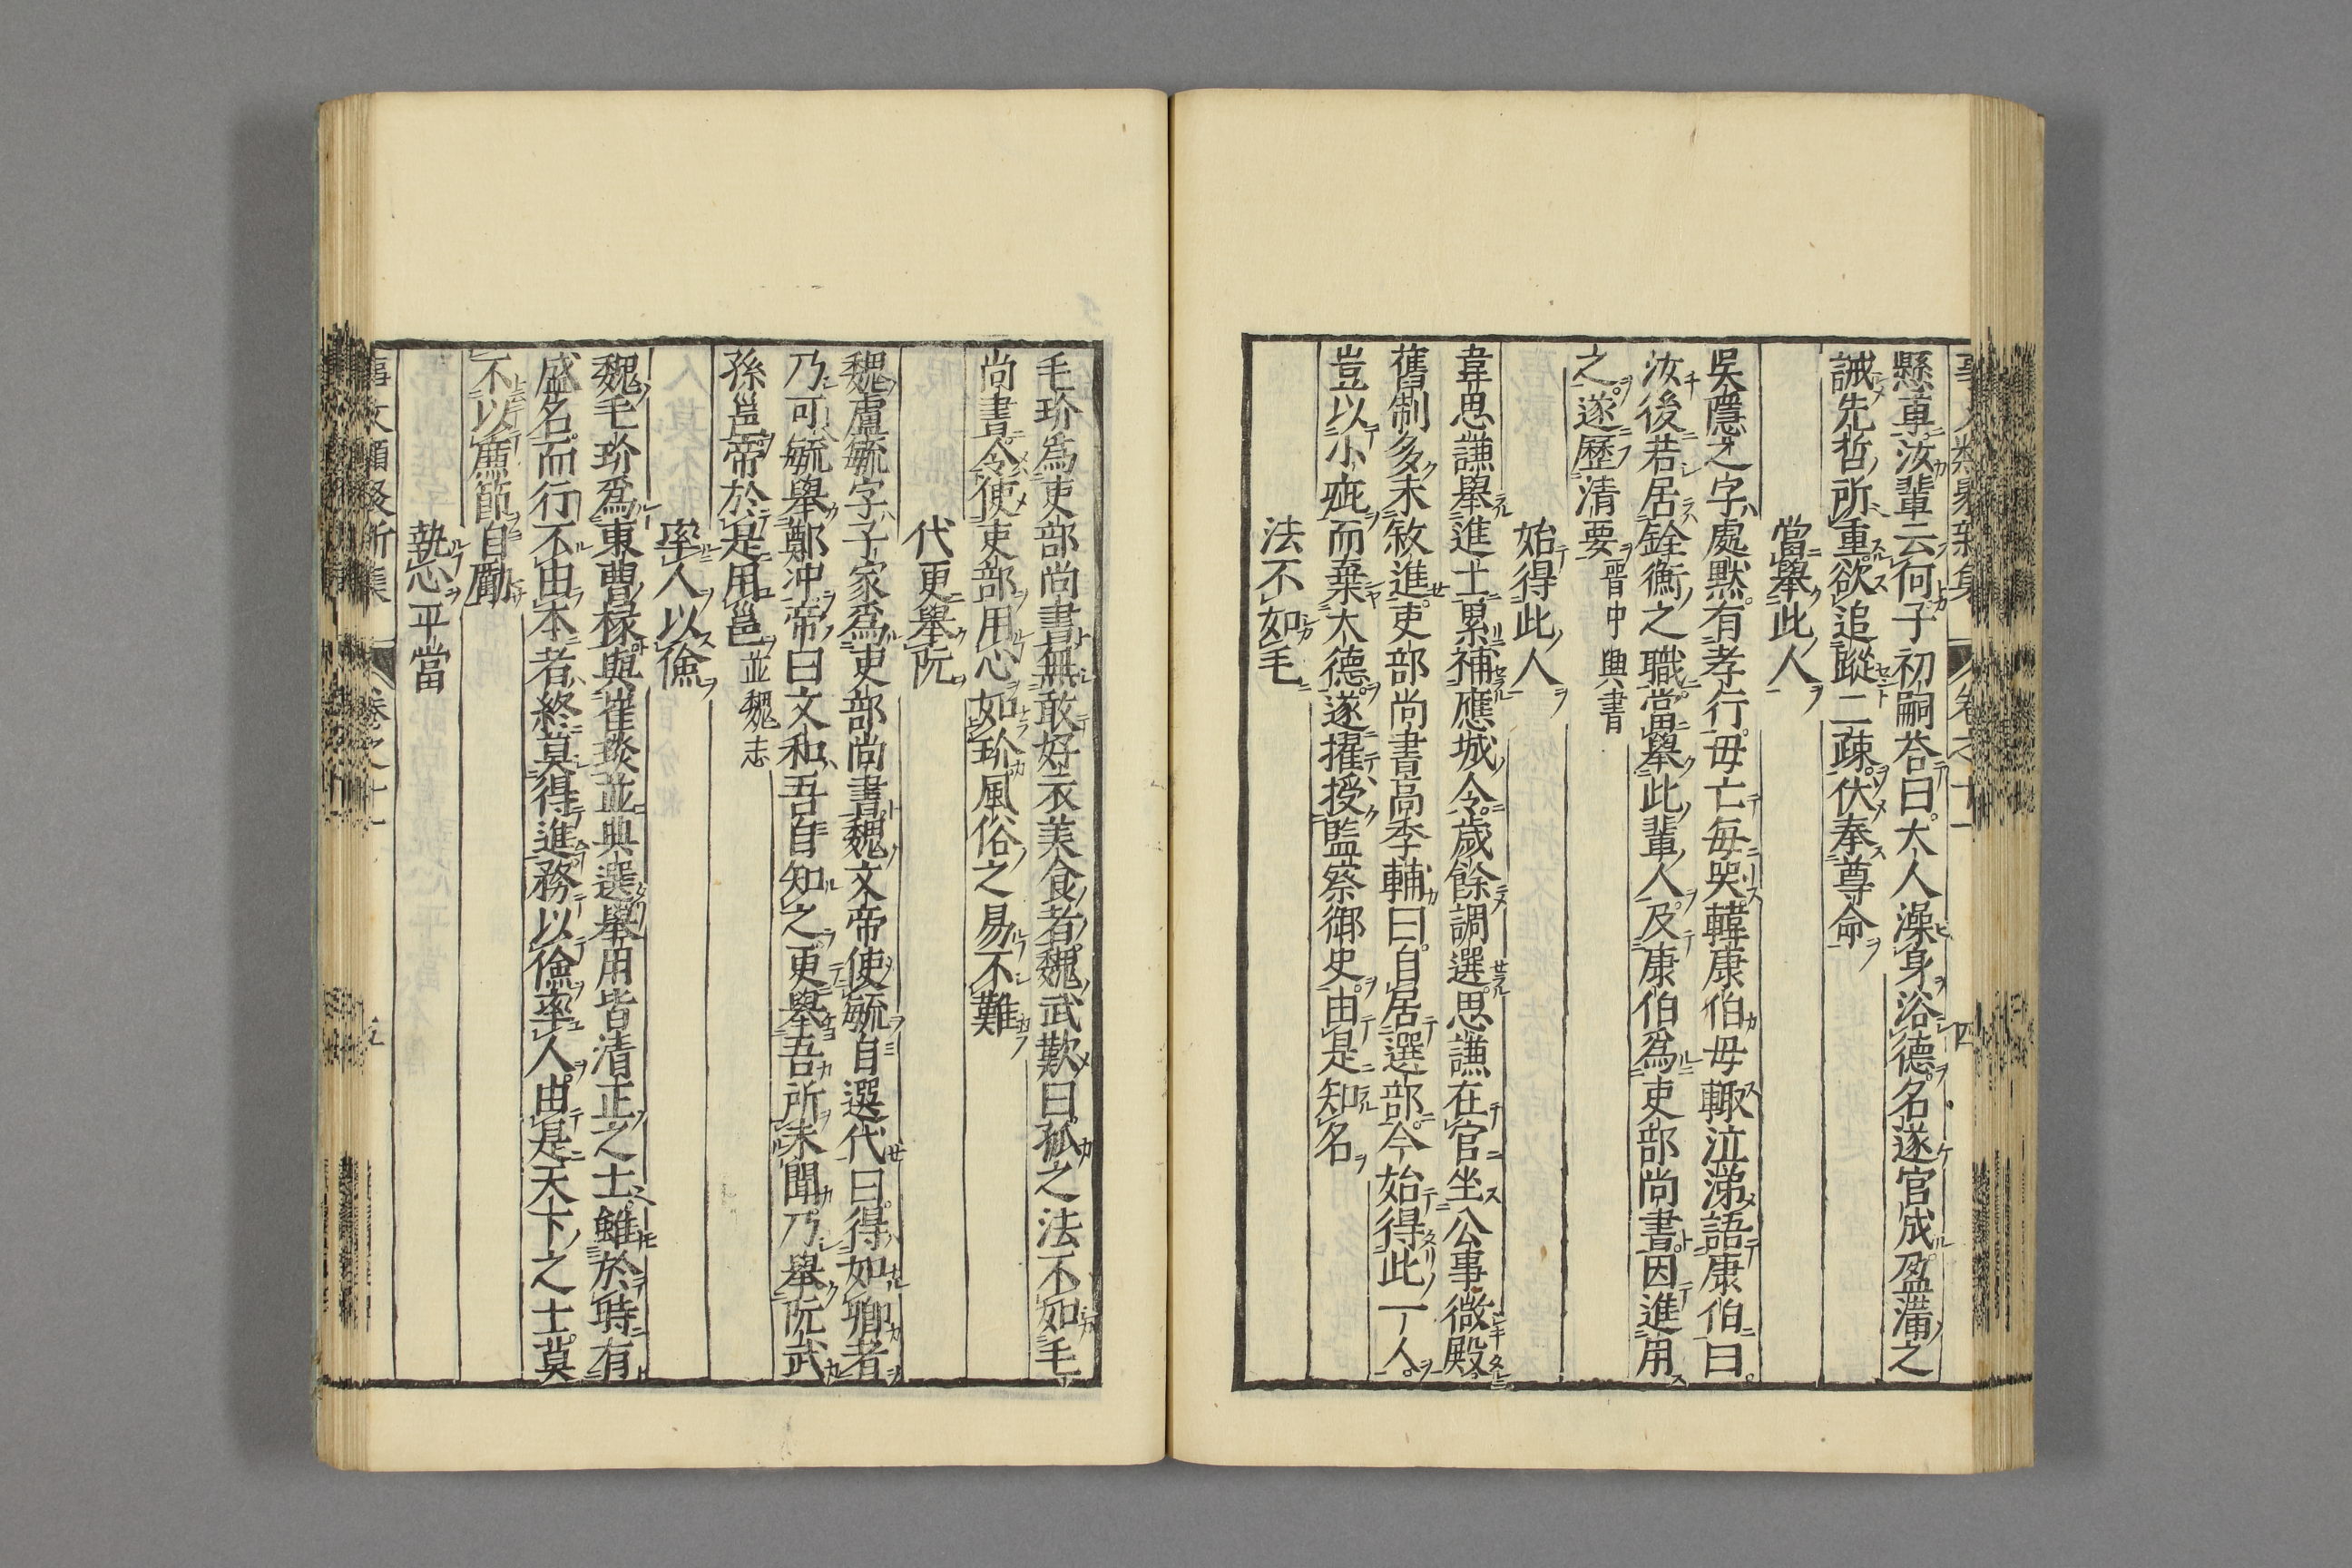 懸車汝輩云何子初嗣荅曰大人澡身浴德名遂官成盈滿之
誡先哲所重欲追蹤二疎伏奉尊命
當舉此人
吳隱之字處黙有孝行母亡每哭韓康伯母輙泣涕語康伯曰
汝後若居銓衡之職當舉此輩人及康伯爲吏部尚書因進用
之遂歷清要晋中興書
始得此人
韋思謙舉進士累補應城令歲餘調選思謙在官坐公事微殿
舊制多未敘進吏部尚書髙季輔曰自居選部今始得此一人
豈以小疵而棄大德遂擢授監察御史由是知名
法不如毛
毛玠爲吏部尚書無敢好衣美食者魏武歎曰孤之法不如毛
尚書令使吏部用心如玠風俗之易不難
代更舉阮
魏盧毓字子家爲吏部尚書魏文帝使毓自選代曰得如卿者
乃可毓舉鄭冲帝曰文和吾自知之更舉吾所未聞乃舉阮武
孫邕帝於是用邕並魏志
率人以儉
魏毛玠爲東曹椽與崔琰並典選舉用皆清正之士雖於時有
盛名而行不由本者終莫得進務以儉率人由是天下之士莫
不以廉節自勵
執心平當
事文類聚新集 卷之十一